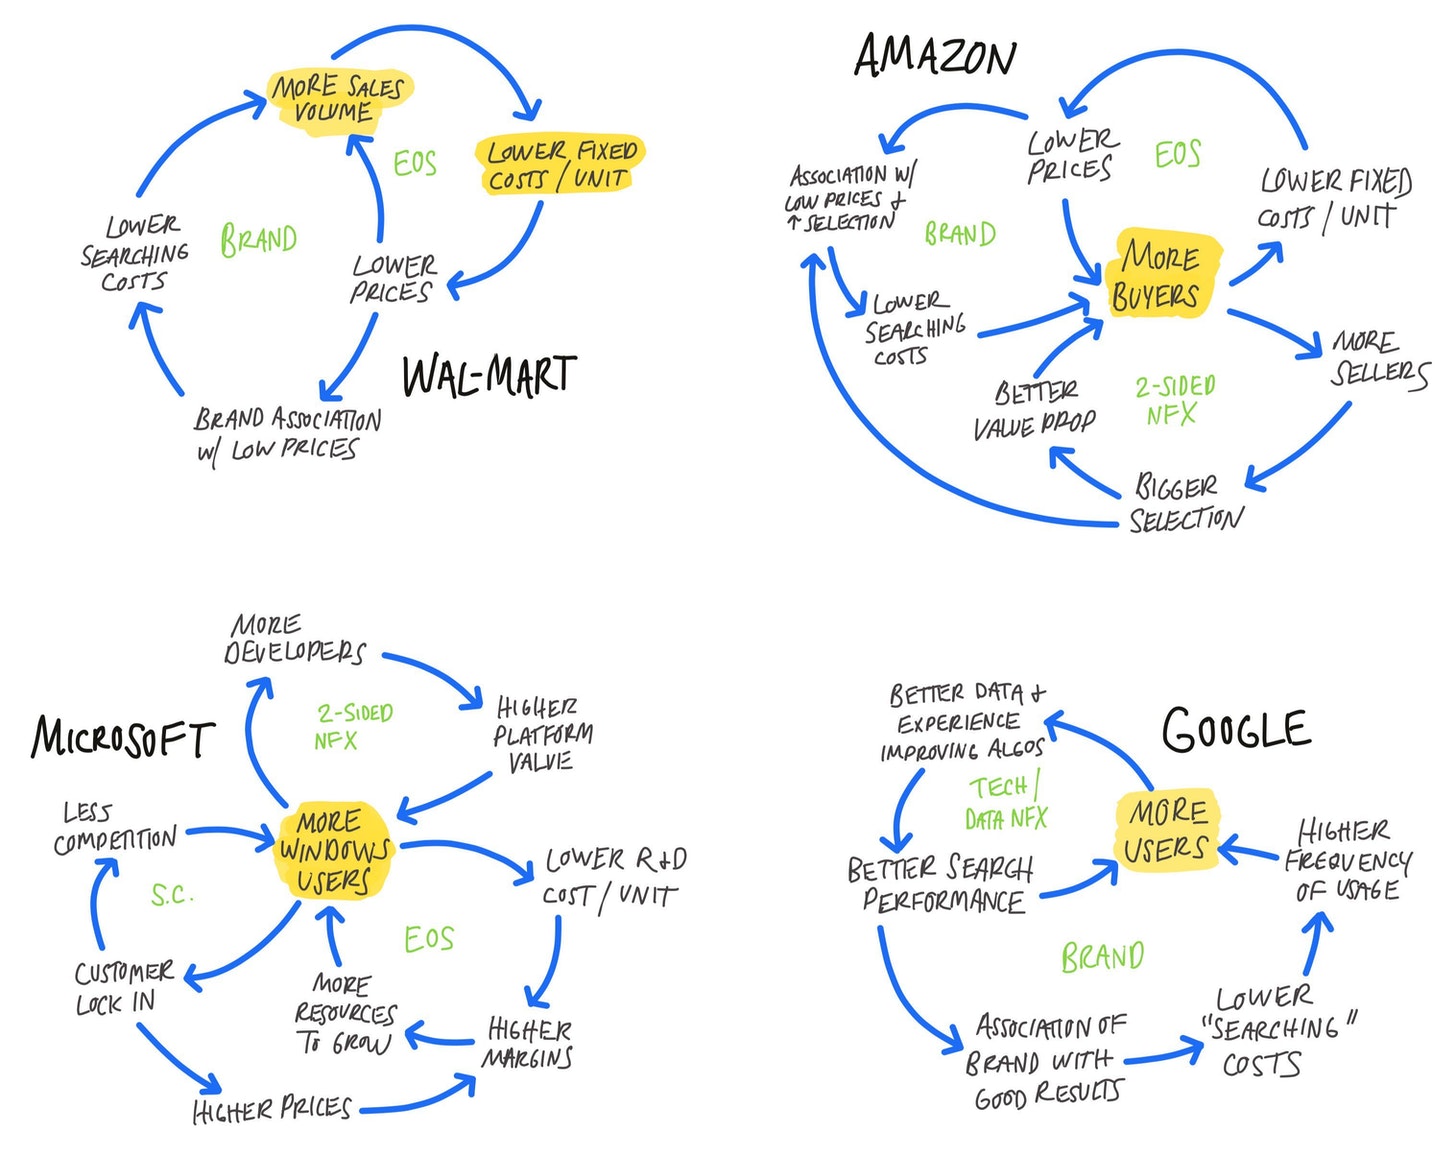 MORE SALES
VOLUME
EOS
LOWER FIXED
COSTS / UNIT
LOWER
SEARCHING
COSTS
BRAND
LOWER
PRICES
WAL-MART
BRAND ASSOCIATION
w/ LOW PRICES
AMAZON
LOWER
PRICES
EOS
ASSOCIATION W/
LOW PRICES +
↑ SELECTION
LOWER FIXED
COSTS / UNIT
BRAND
MORE
BUYERS
LOWER
SEARCHING
COSTS
MORE
SELLERS
BETTER
VALUE PROP
2-SIDED
NFX
BIGGER
SELECTION
MORE
DEVELOPERS
MICROSOFT
2-SIDED
NFX
HIGHER
PLATFORM
VALUE
LESS
COMPETITION
MORE
WINDOWS
USERS
LOWER R+D
COST / UNIT
S.C.
EOS
CUSTOMER
LOCK IN
MORE
RESOURCES
TO GROW
HIGHER
MARGINS
HIGHER PRICES
BETTER DATA +
EXPERIENCE
IMPROVING ALGOS
GOOGLE
TECH /
DATA NFX
MORE
USERS
HIGHER
FREQUENCY
OF USAGE
BETTER SEARCH
PERFORMANCE
BRAND
ASSOCIATION OF
BRAND WITH
GOOD RESULTS
LOWER
"SEARCHING"
COSTS